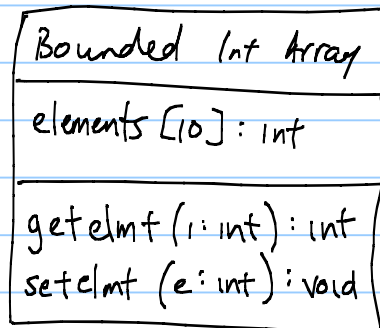 Bounded Int Array
elements [10] : int
getelmt (i : int) : int
setelmt (e : int) : void